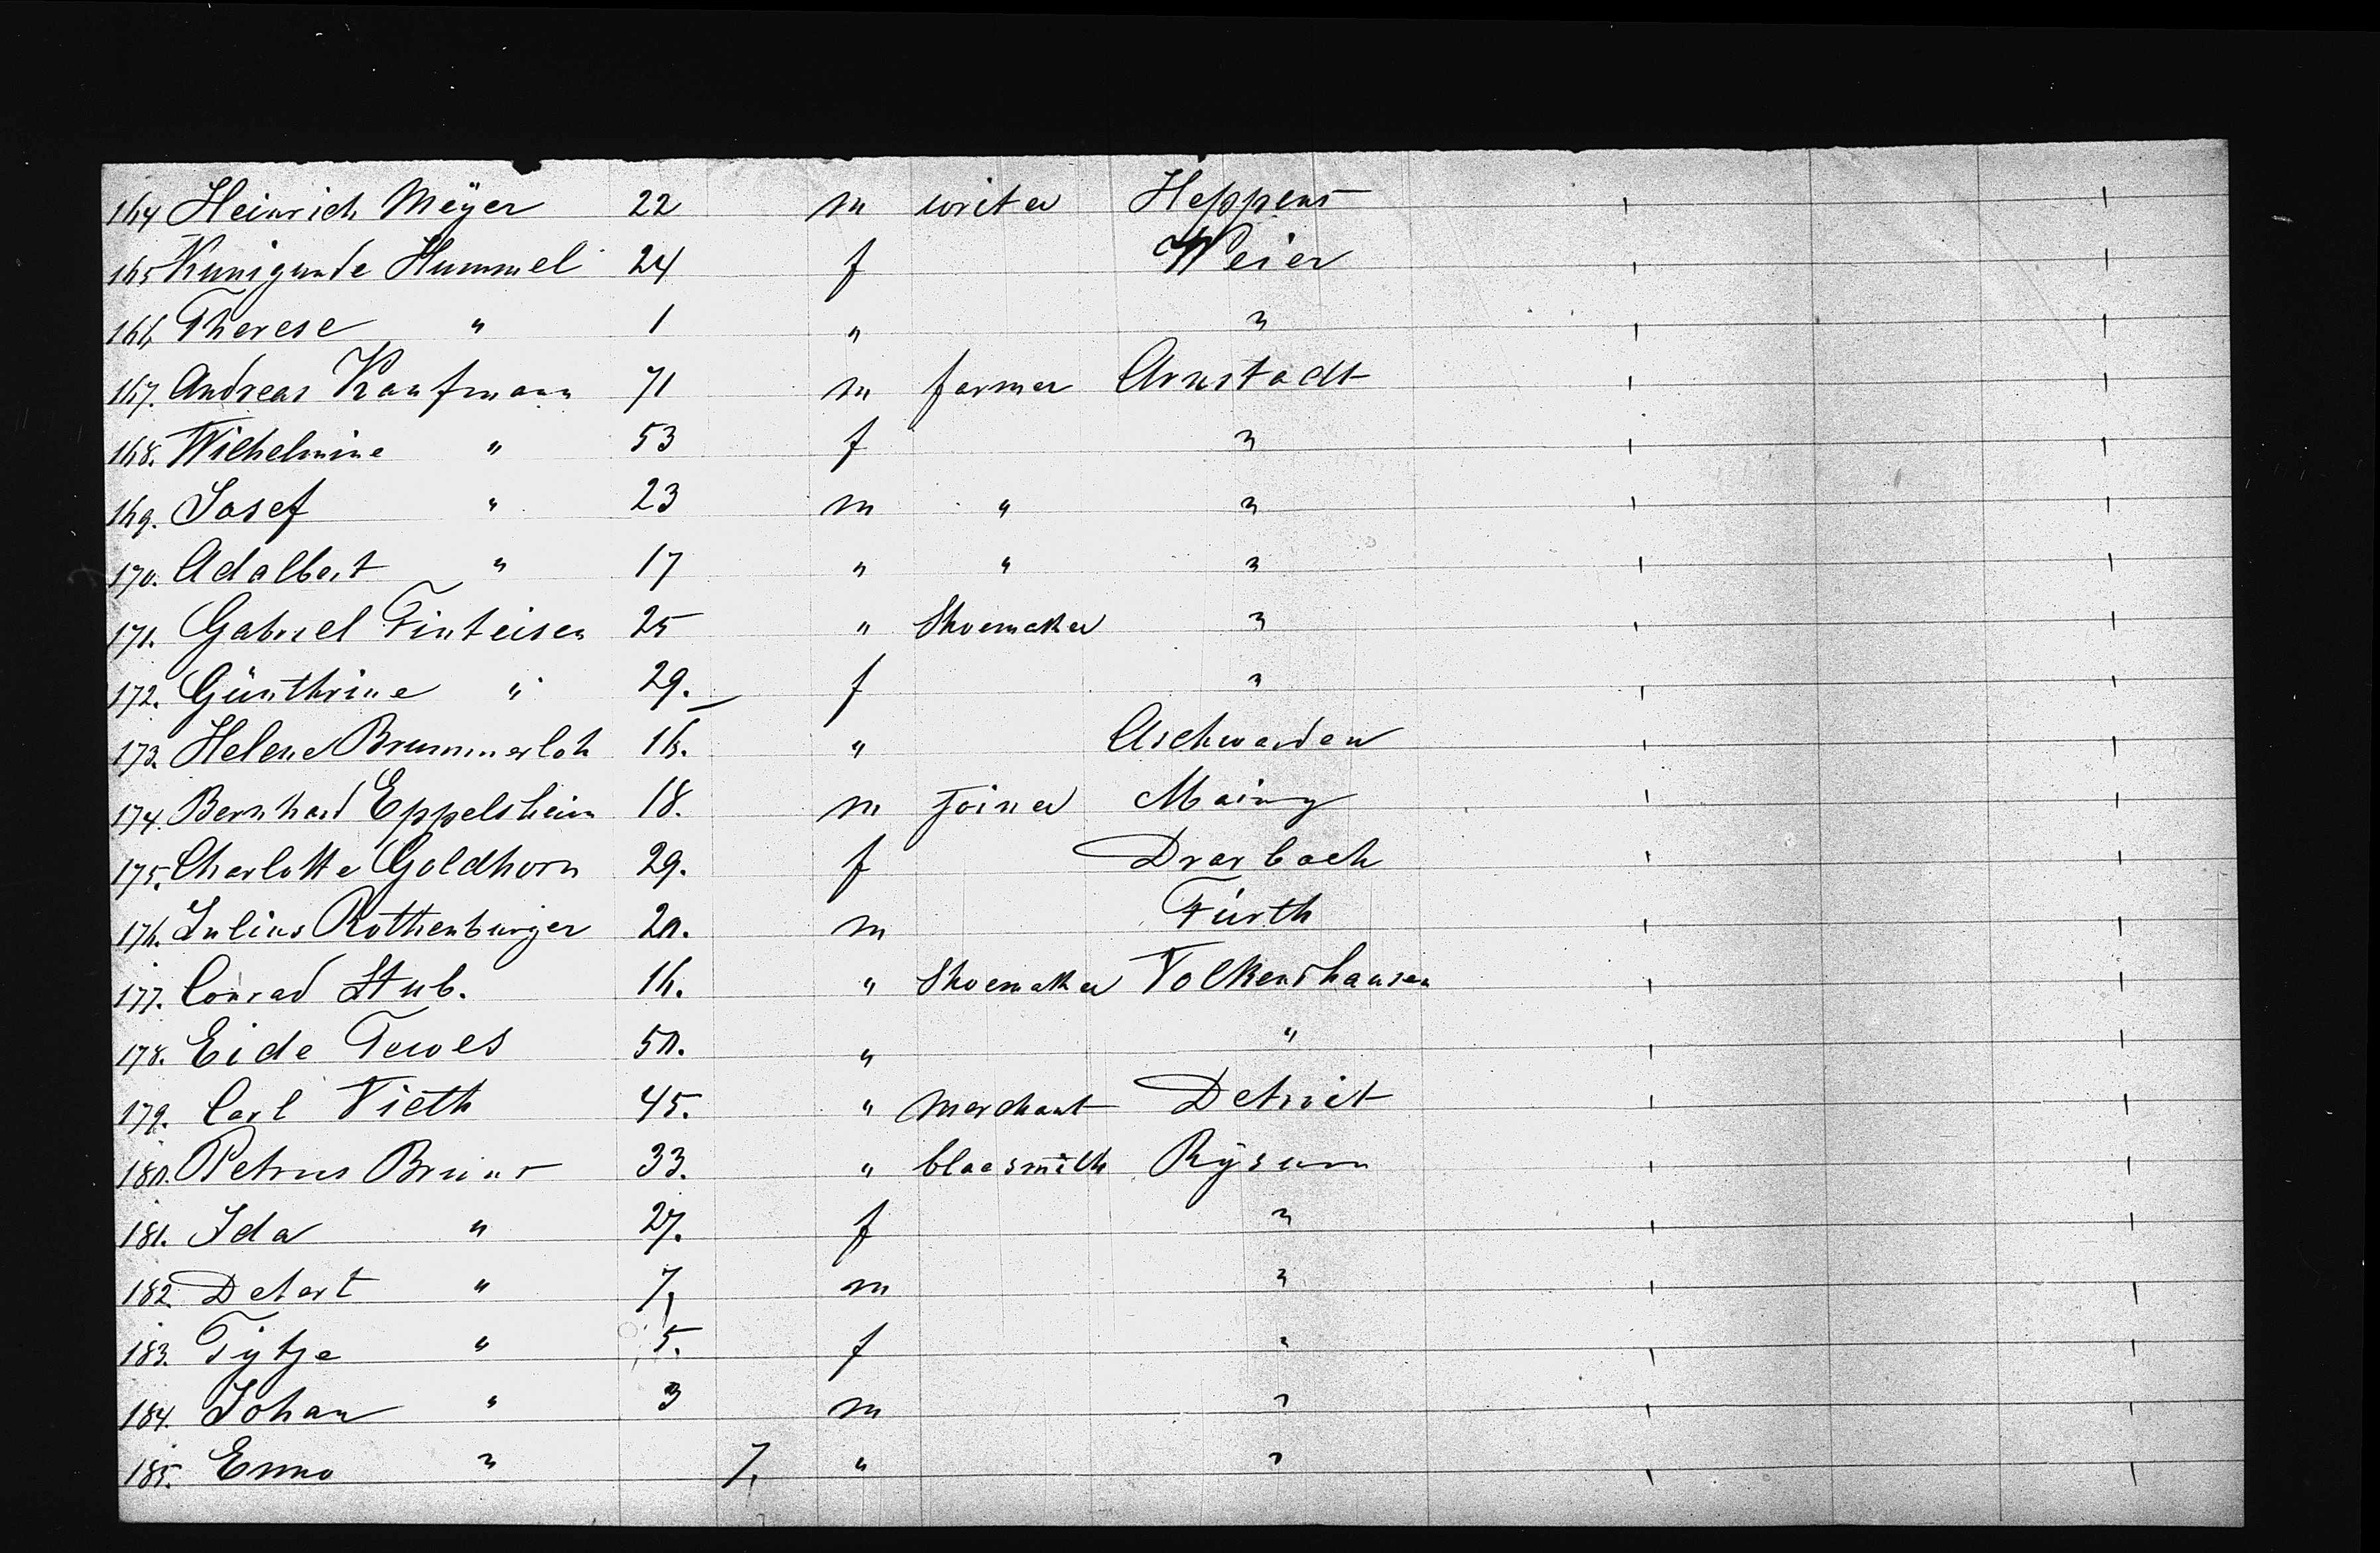 164 Heinrich Meÿer 22 m writer Heppens
165 Kunigunde Hummel 24 f Weier
166. Therese " 1 " "
167. Andreas Kaufmann 71 m farmer Arnstadt
168. Wilhelmine " 53 f "
169. Josef " 23 m " "
170. Adalbert " 17 " " "
171. Gabriel Finteisen 25 " Shoemaker "
172. Günthrine " 29. f "
173. Helene Brummerloh 16. " Aschwarden
174. Bernhard Eppelsheim 18. m Joiner Mainz
175. Charlotte Goldhorn 29. f Drarbach
176. Julius Rothenburger 20. m Fürth
177. Conrad Stub. 16. " Shoemaker Volkershausen
178. Eide Tewes 50. " "
179. Carl Vieth 45. " Merchant Detroit
180. Petrus Bruns 33. " blacsmith Rÿsum
181. Ida " 27. f "
182. Detert " 7. m "
183. Tÿtje " 5. f "
184. Johan " 3 m "
185. Enno " 7. " "